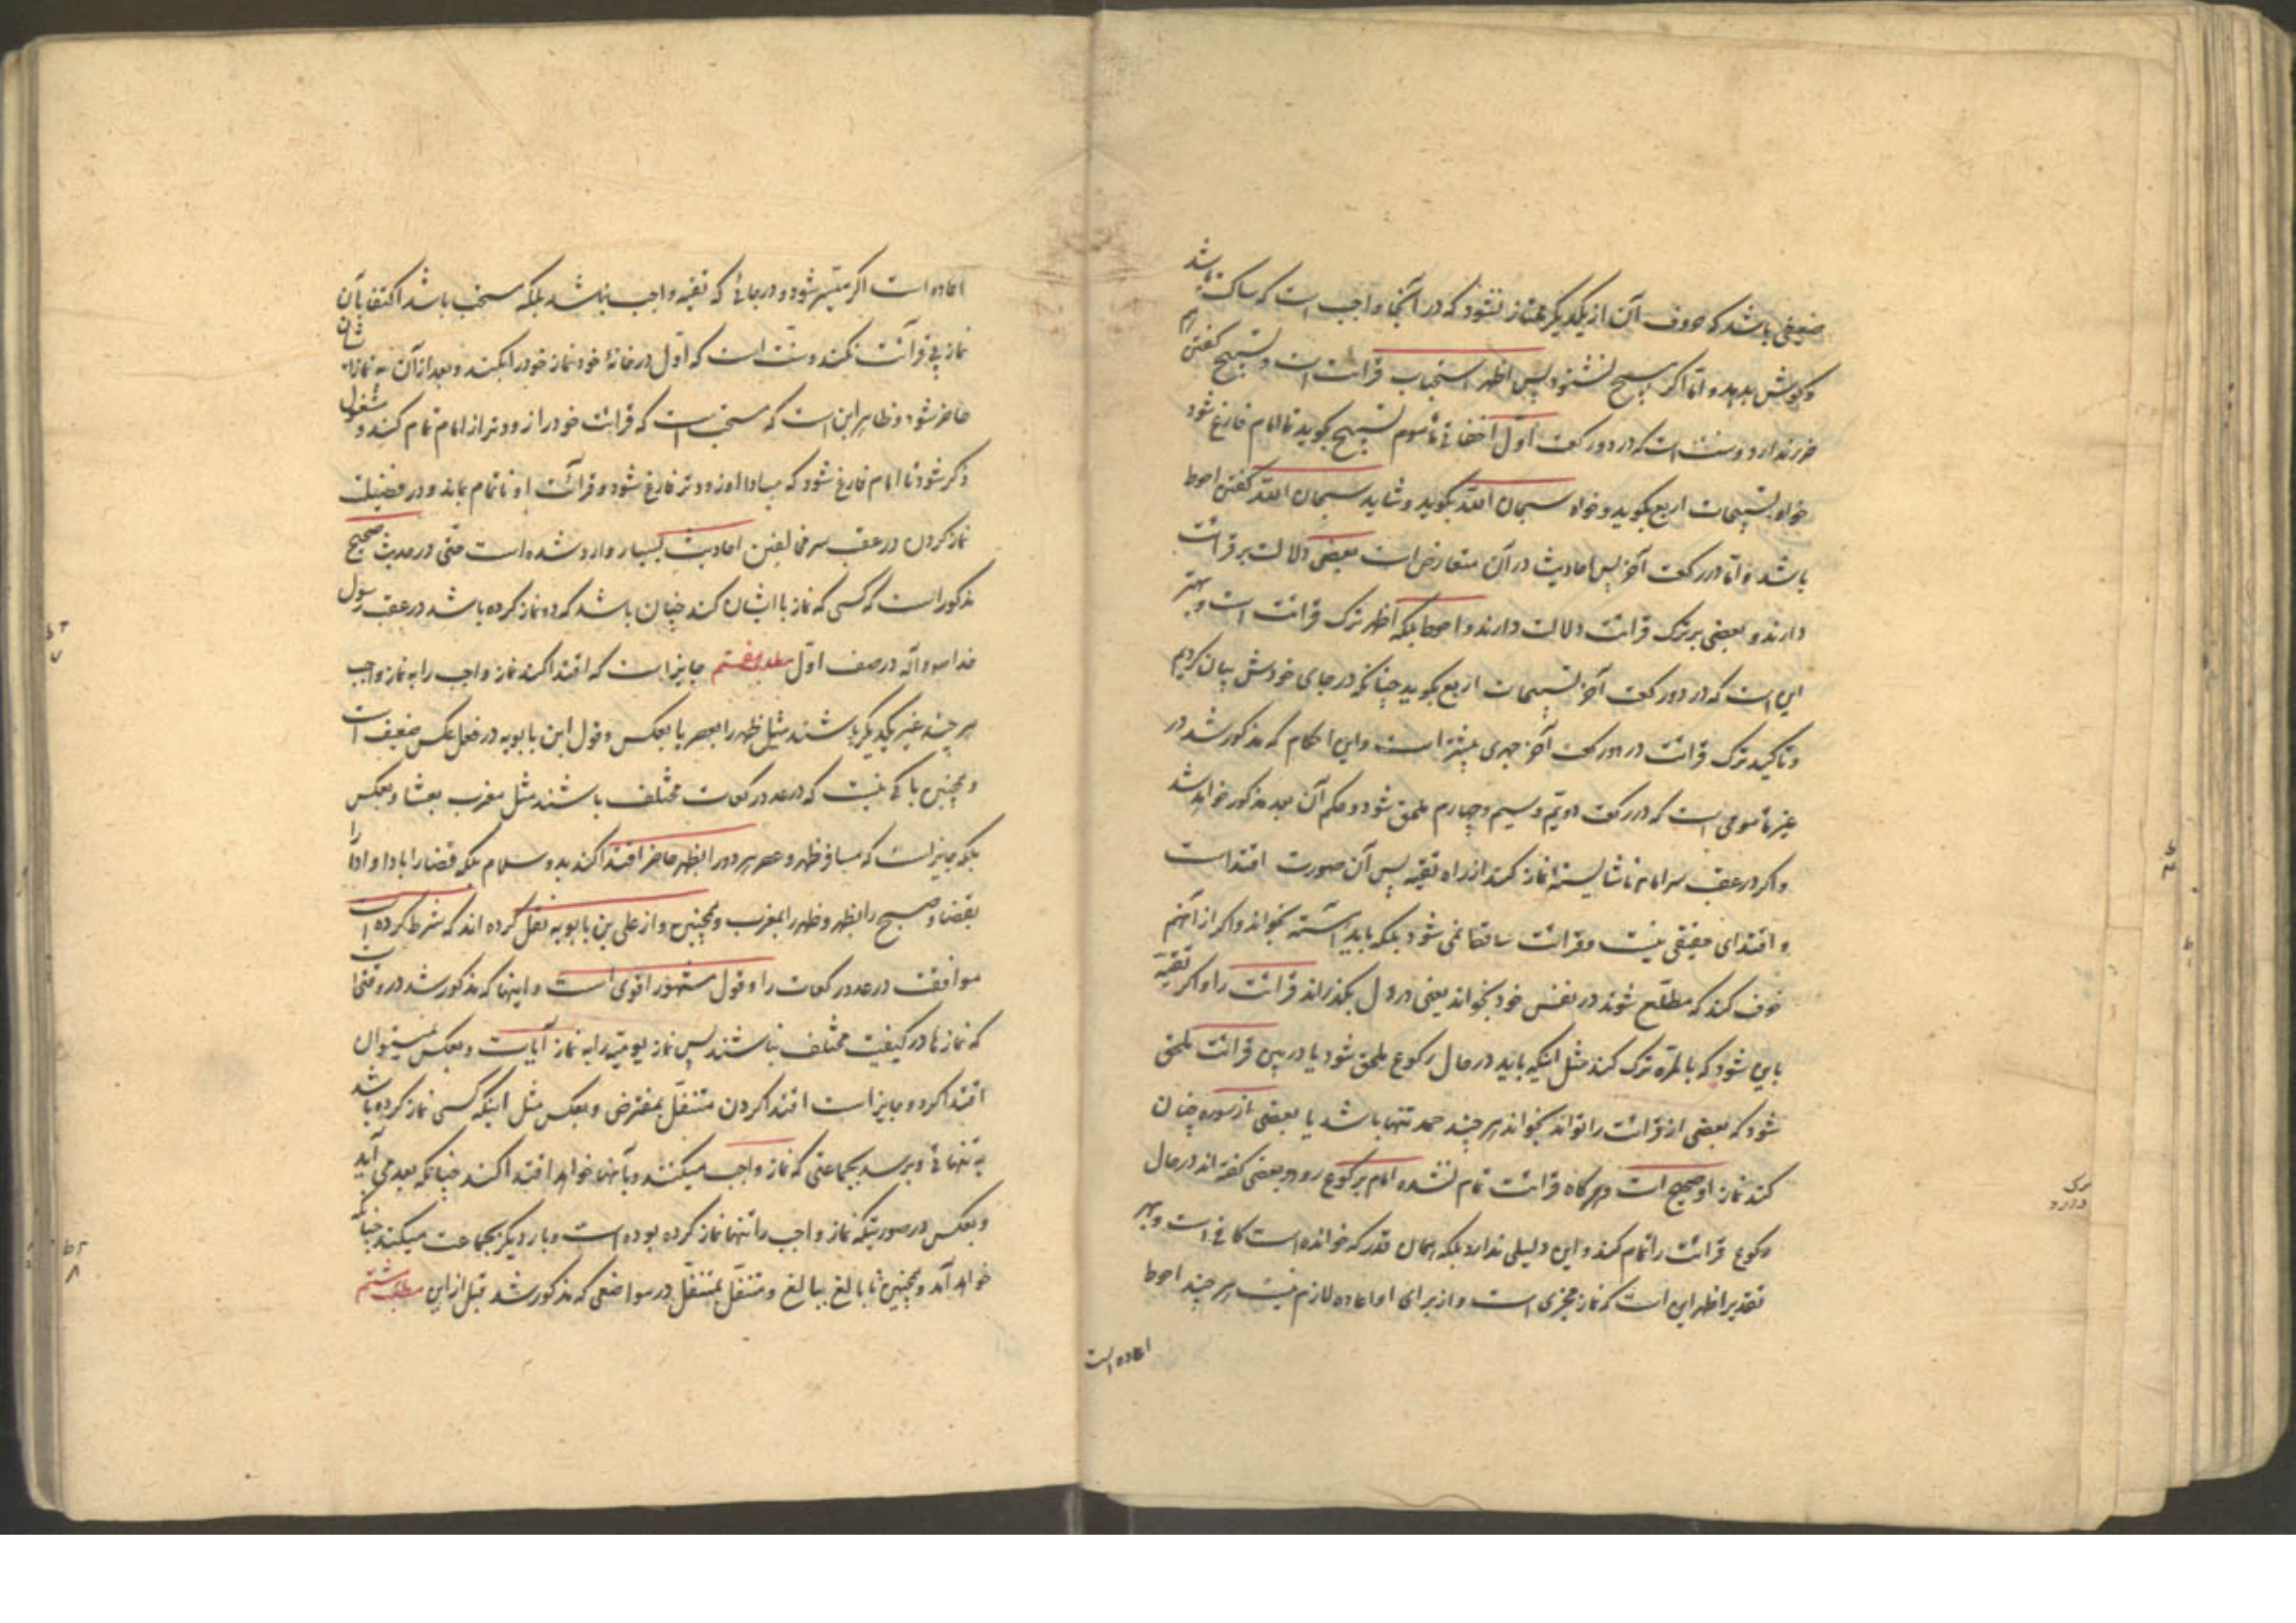 ضعیفی باشد که حروف آن از یکدیگر ممتاز نشود که در آنجا واجب است که ساکت باشد
و گوش بدهد و اما اگر هیچ نشنود پس اظهر استحباب قرائت است و تسبیح گفتن هم
ضرر ندارد و سنت است که در دو رکعت اول اخفاتی مأموم تسبیح بگوید تا امام فارغ شود
خواه تسبیحات اربع بگوید و خواه سبحان الله بگوید و شاید سبحان الله گفتن احوط
باشد و اما در رکعت آخر پس احادیث در آن متعارض است بعضی دلالت بر قرائت
دارند و بعضی بر ترک قرائت دلالت دارند و احوط بلکه اظهر ترک قرائت است و بهتر
این است که در دو رکعت آخر تسبیحات اربع بگوید چنانکه در جای خودش بیان کردیم
و تاکید ترک قرائت در دو رکعت آخر جهری بیشتر است و این احکام که مذکور شد در
غیر مأمومی است که در رکعت دویم و سیم و چهارم ملحق شود و حکم آن بعد مذکور خواهد شد
و اگر در عقب سر امام ناشایسته نماز کند از راه تقیه پس آن صورت اقتداست
و اقتدای حقیقی نیست و قرائت ساقط نمی شود بلکه باید آهسته بخواند و اگر از آنهم
خوف کند که مطلع شوند در نفس خود بخواند یعنی در دل بگذراند قرائت را و اگر تقیه
باین شود که بالمره ترک کند مثل اینکه باید در حال رکوع ملحق شود یا در بین قرائت ملحق
شود که بعضی از قرائت را تواند بخواند هر چند حمد تنها باشد یا بعضی از سوره چنان
کند نماز او صحیح است و هرگاه قرائت تمام نشده امام برکوع رود بعضی گفته اند در حال
رکوع قرائت را تمام کند و این دلیلی ندارد بلکه همان قدر که خوانده است کافی است و بهر
تقدیر اظهر این است که نماز مجزی است و از برای او اعاده لازم نیست هر چند احوط
اعاده است
اعاده است اگر میسر شود و در جائی که تقیه واجب نباشد بلکه مستحب باشد اکتفا بآن
نماز بی قرائت نکند و سنت است که اول در خانه خود نماز خود را بکند و بعد از آن به نماز ایشان
حاضر شود و ظاهر این است که مستحب است که قرائت خود را زودتر از امام تمام کند و مشغول
ذکر شود تا امام فارغ شود که مبادا او زودتر فارغ شود و قرائت او ناتمام بماند و در فضیلت
نماز کردن در عقب سر مخالفین احادیث بسیار وارد شده است حتی در حدیث صحیح
مذکور است که کسی که نماز با ایشان کند چنان باشد که نماز کرده باشد در عقب رسول
خدا ص و آله در صف اول مطلب هفتم جایز است که اقتدا کند نماز واجب را به نماز واجب
هر چند غیر یکدیگر باشند مثل ظهر را بعصر یا بعکس و قول ابن بابویه در محل عکس ضعیف است
و همچنین باکی نیست که در عدد رکعات مختلف باشند مثل مغرب بعشا و بعکس
بلکه جایز است که مسافر ظهر و عصر هر دو را بظهر حاضر اقتدا کند بدو سلام بلکه قضا را بادا و ادا را
بقضا و صبح را بظهر و ظهر را بمغرب و همچنین و از علی بن بابویه نقل کرده اند که شرط کرده است
موافقت در عدد رکعات را و قول مشهور اقوی است و اینها که مذکور شد در وقتی است
که نمازها در کیفیت مختلف نباشند پس نماز یومیه را به نماز آیات و بعکس نمیتوان
اقتدا کرد و جایز است اقتدا کردن متنفل بمفترض و بعکس مثل اینکه کسی نماز کرده باشد
به تنهائی و برسد بجماعتی که نماز واجب میکنند و بآنها خواهد اقتدا کند چنانکه بعد می آید
و بعکس در صورتیکه نماز واجب را تنها نماز کرده بوده است و بار دیگر بجماعت میکند چنانکه
خواهد آمد و همچنین نابالغ ببالغ و متنفل بمتنفل در مواضعی که مذکور شد قبل از این مطلب هشتم